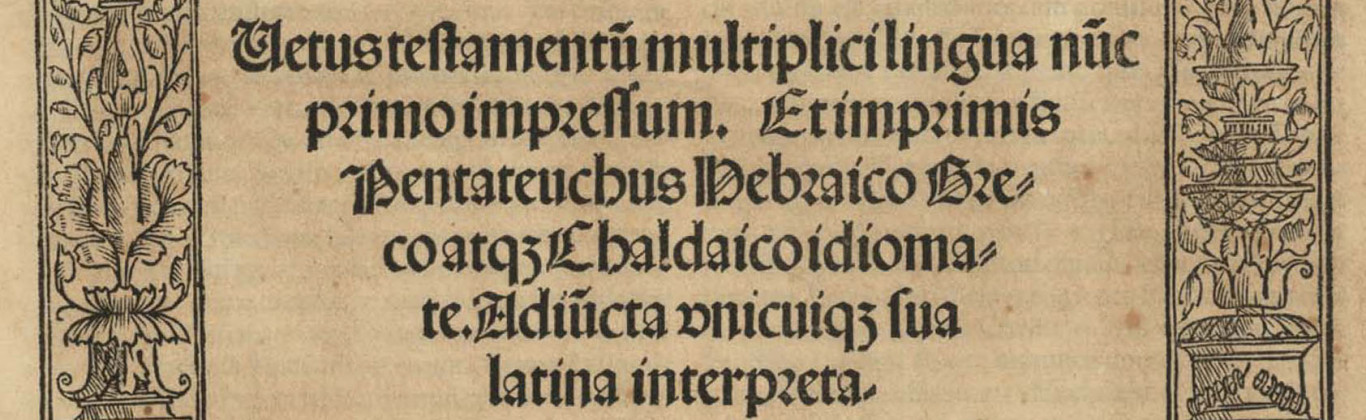 Uetus testamentũ multiplici lingua nũc
primo impressum. Et imprimis
Pentateuchus Hebraico Gre⸗
co atqꝫ Chaldaico idioma⸗
te. Adiũcta vnicuiqꝫ sua
latina interpreta⸗